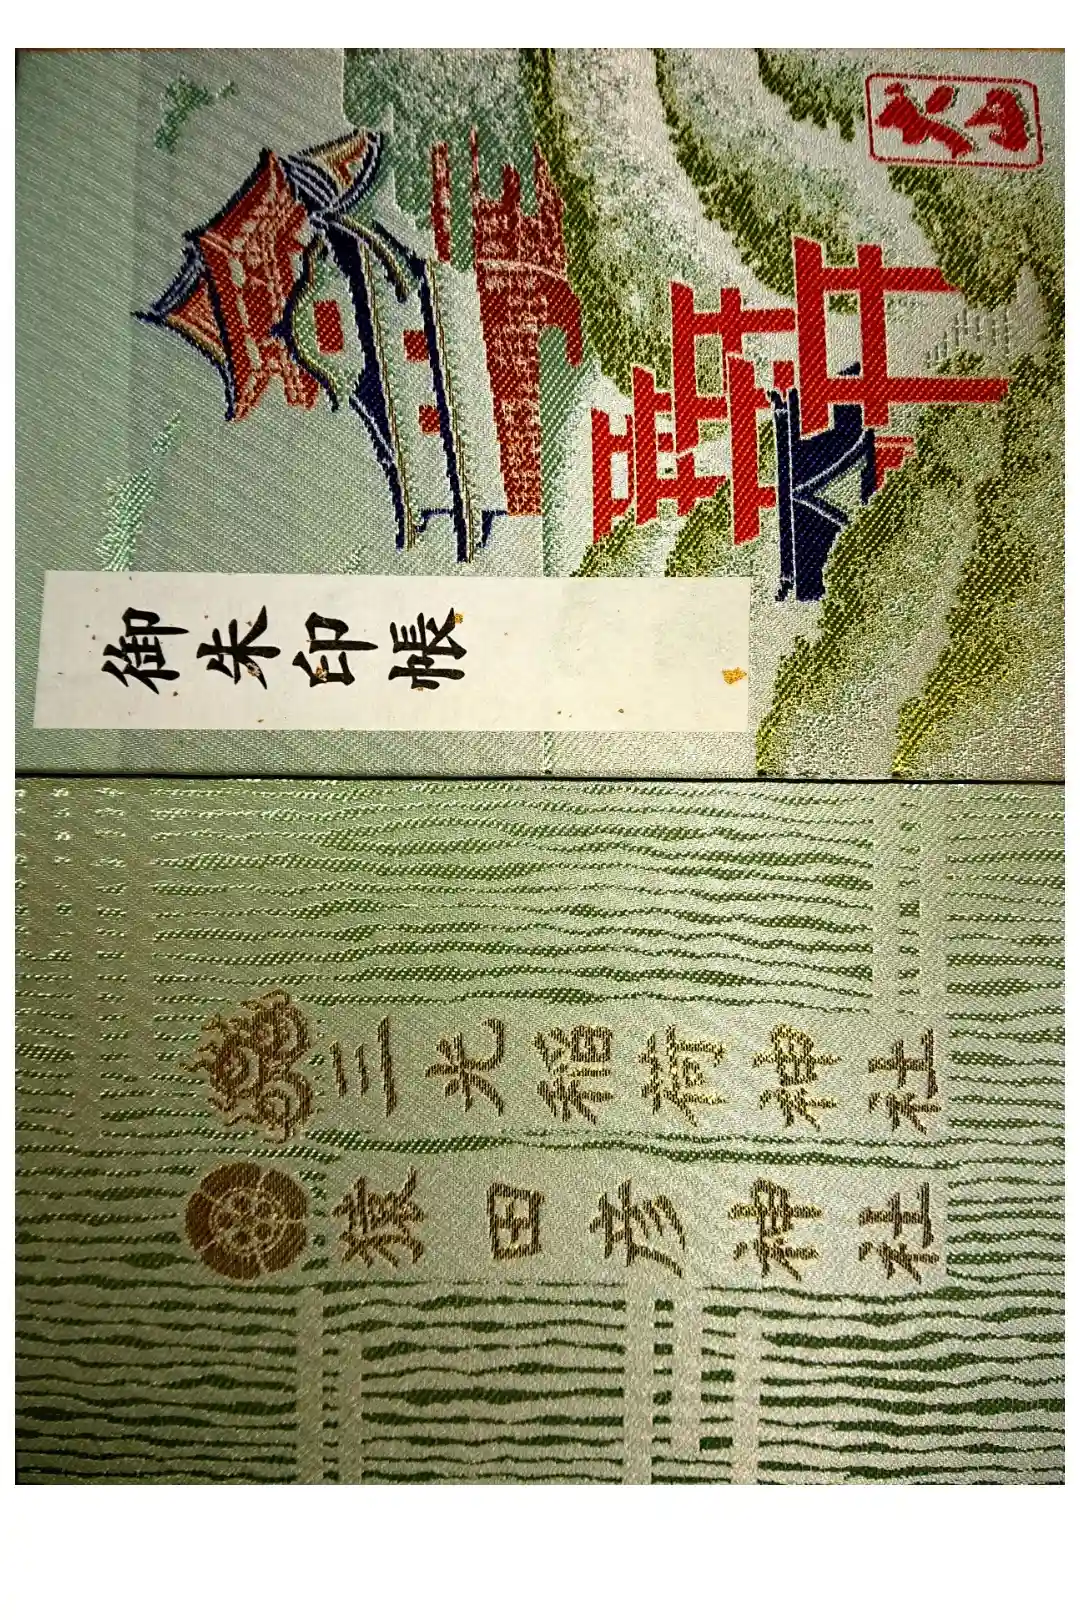 犬山
御朱印帳
三光稲荷神社
猿田彦神社